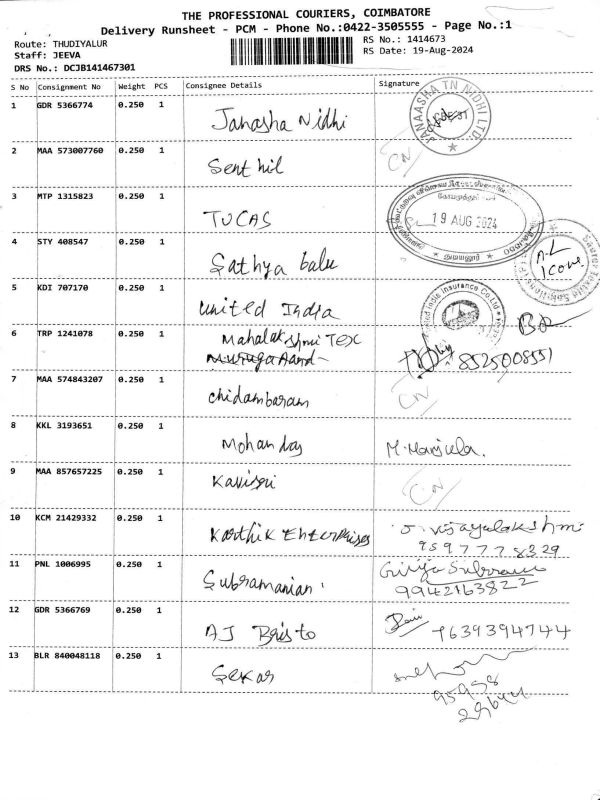 THE PROFESSIONAL COURIERS, COIMBATORE
Delivery Runsheet - PCM - Phone No.:0422-3505555 - Page No.:1
Route: THUDIYALUR
Staff: JEEVA
DRS No.: DCJB141467301
RS No.: 1414673
RS Date: 19-Aug-2024
S No Consignment No Weight PCS Consignee Details Signature
1 GDR 5366774 0.250 1 Janasha Nidhi
JANAASHA TN NIDHI LTD.
2 MAA 573007760 0.250 1 Senthil CN
3 MTP 1315823 0.250 1 TUCAS
19 AUG 2024
துடியலூர்
4 STY 408547 0.250 1 Sathya balu
5 KDI 707170 0.250 1 United India
United India Insurance Co Ltd
6 TRP 1241078 0.250 1 Mahalakshmi TEX
8525008551
7 MAA 574843207 0.250 1 chidambaram CN
8 KKL 3193651 0.250 1 Mohan das M. Manjula.
9 MAA 857657225 0.250 1 Kavisri CN
10 KCM 21429332 0.250 1 Karthik Enterprises J. Vijayalakshmi
9597778329
11 PNL 1006995 0.250 1 Subramanian Girija Subramani
9942163822
12 GDR 5366769 0.250 1 AJ Bristo 9639394744
13 BLR 840048118 0.250 1 Sekar
95958
29644